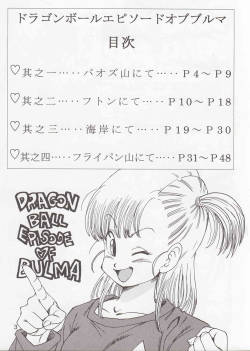 ドラゴンボールエピソードオブブルマ
目次
♡其之一‥‥‥パオズ山にて‥‥P4～P9
♡其之二‥‥‥フトンにて‥‥P10～P18
♡其之三‥‥‥海岸にて‥‥‥P19～P30
♡其之四‥‥フライパン山にて‥‥P31～P48
DRAGON
BALL
EPISODE
OF
BULMA